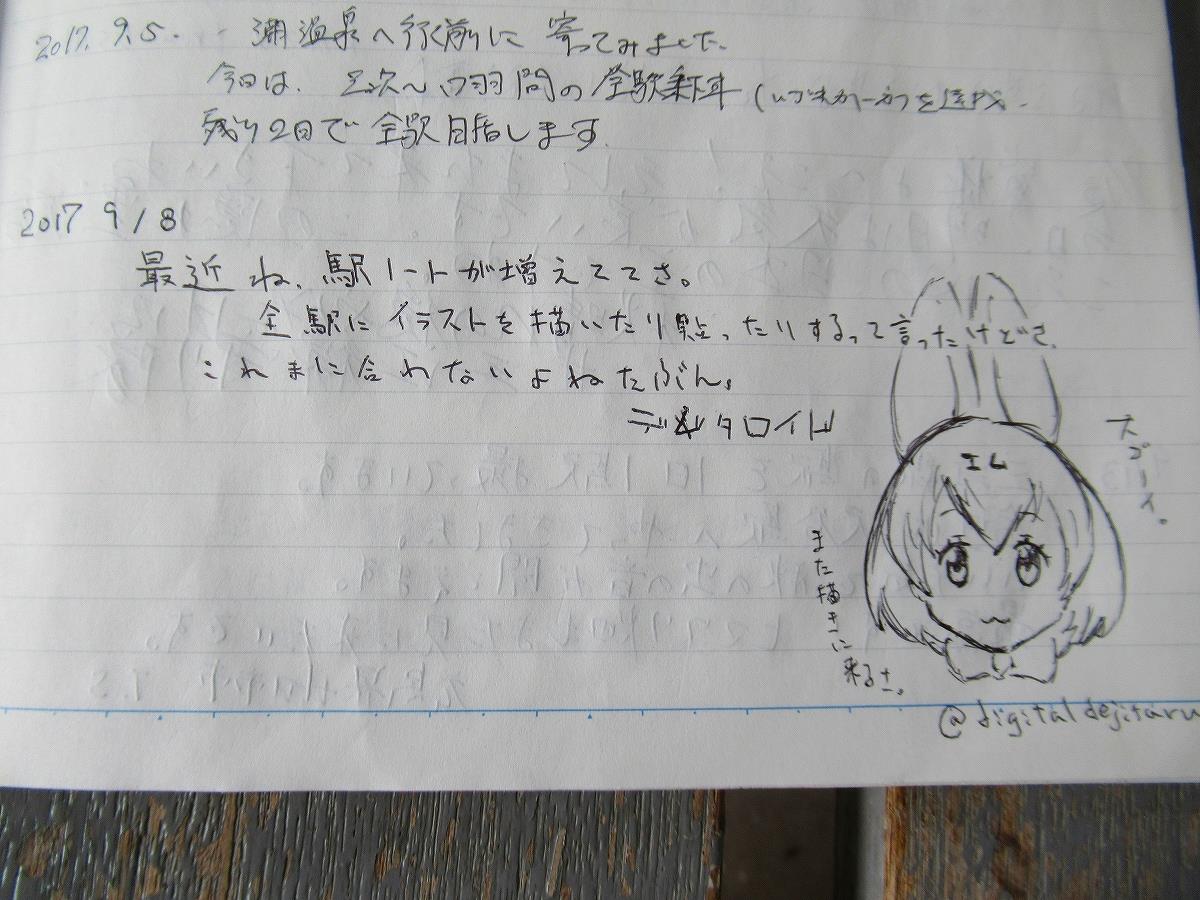 2017. 9. 5. 温泉へ行く前に 寄ってみました。
今日は、 間の全駅乗下車 (いずれか一方)を達成
残り2回で全駅目指します
2017 9/8
最近ね、駅ノートが増えててさ。
全駅にイラストを描いたり貼ったりするって言ったけどさ、
これまに合わないよねたぶん。
タロイド
エム
スゴーイ。
また描きに
来るさ。
@digitaldejitaru